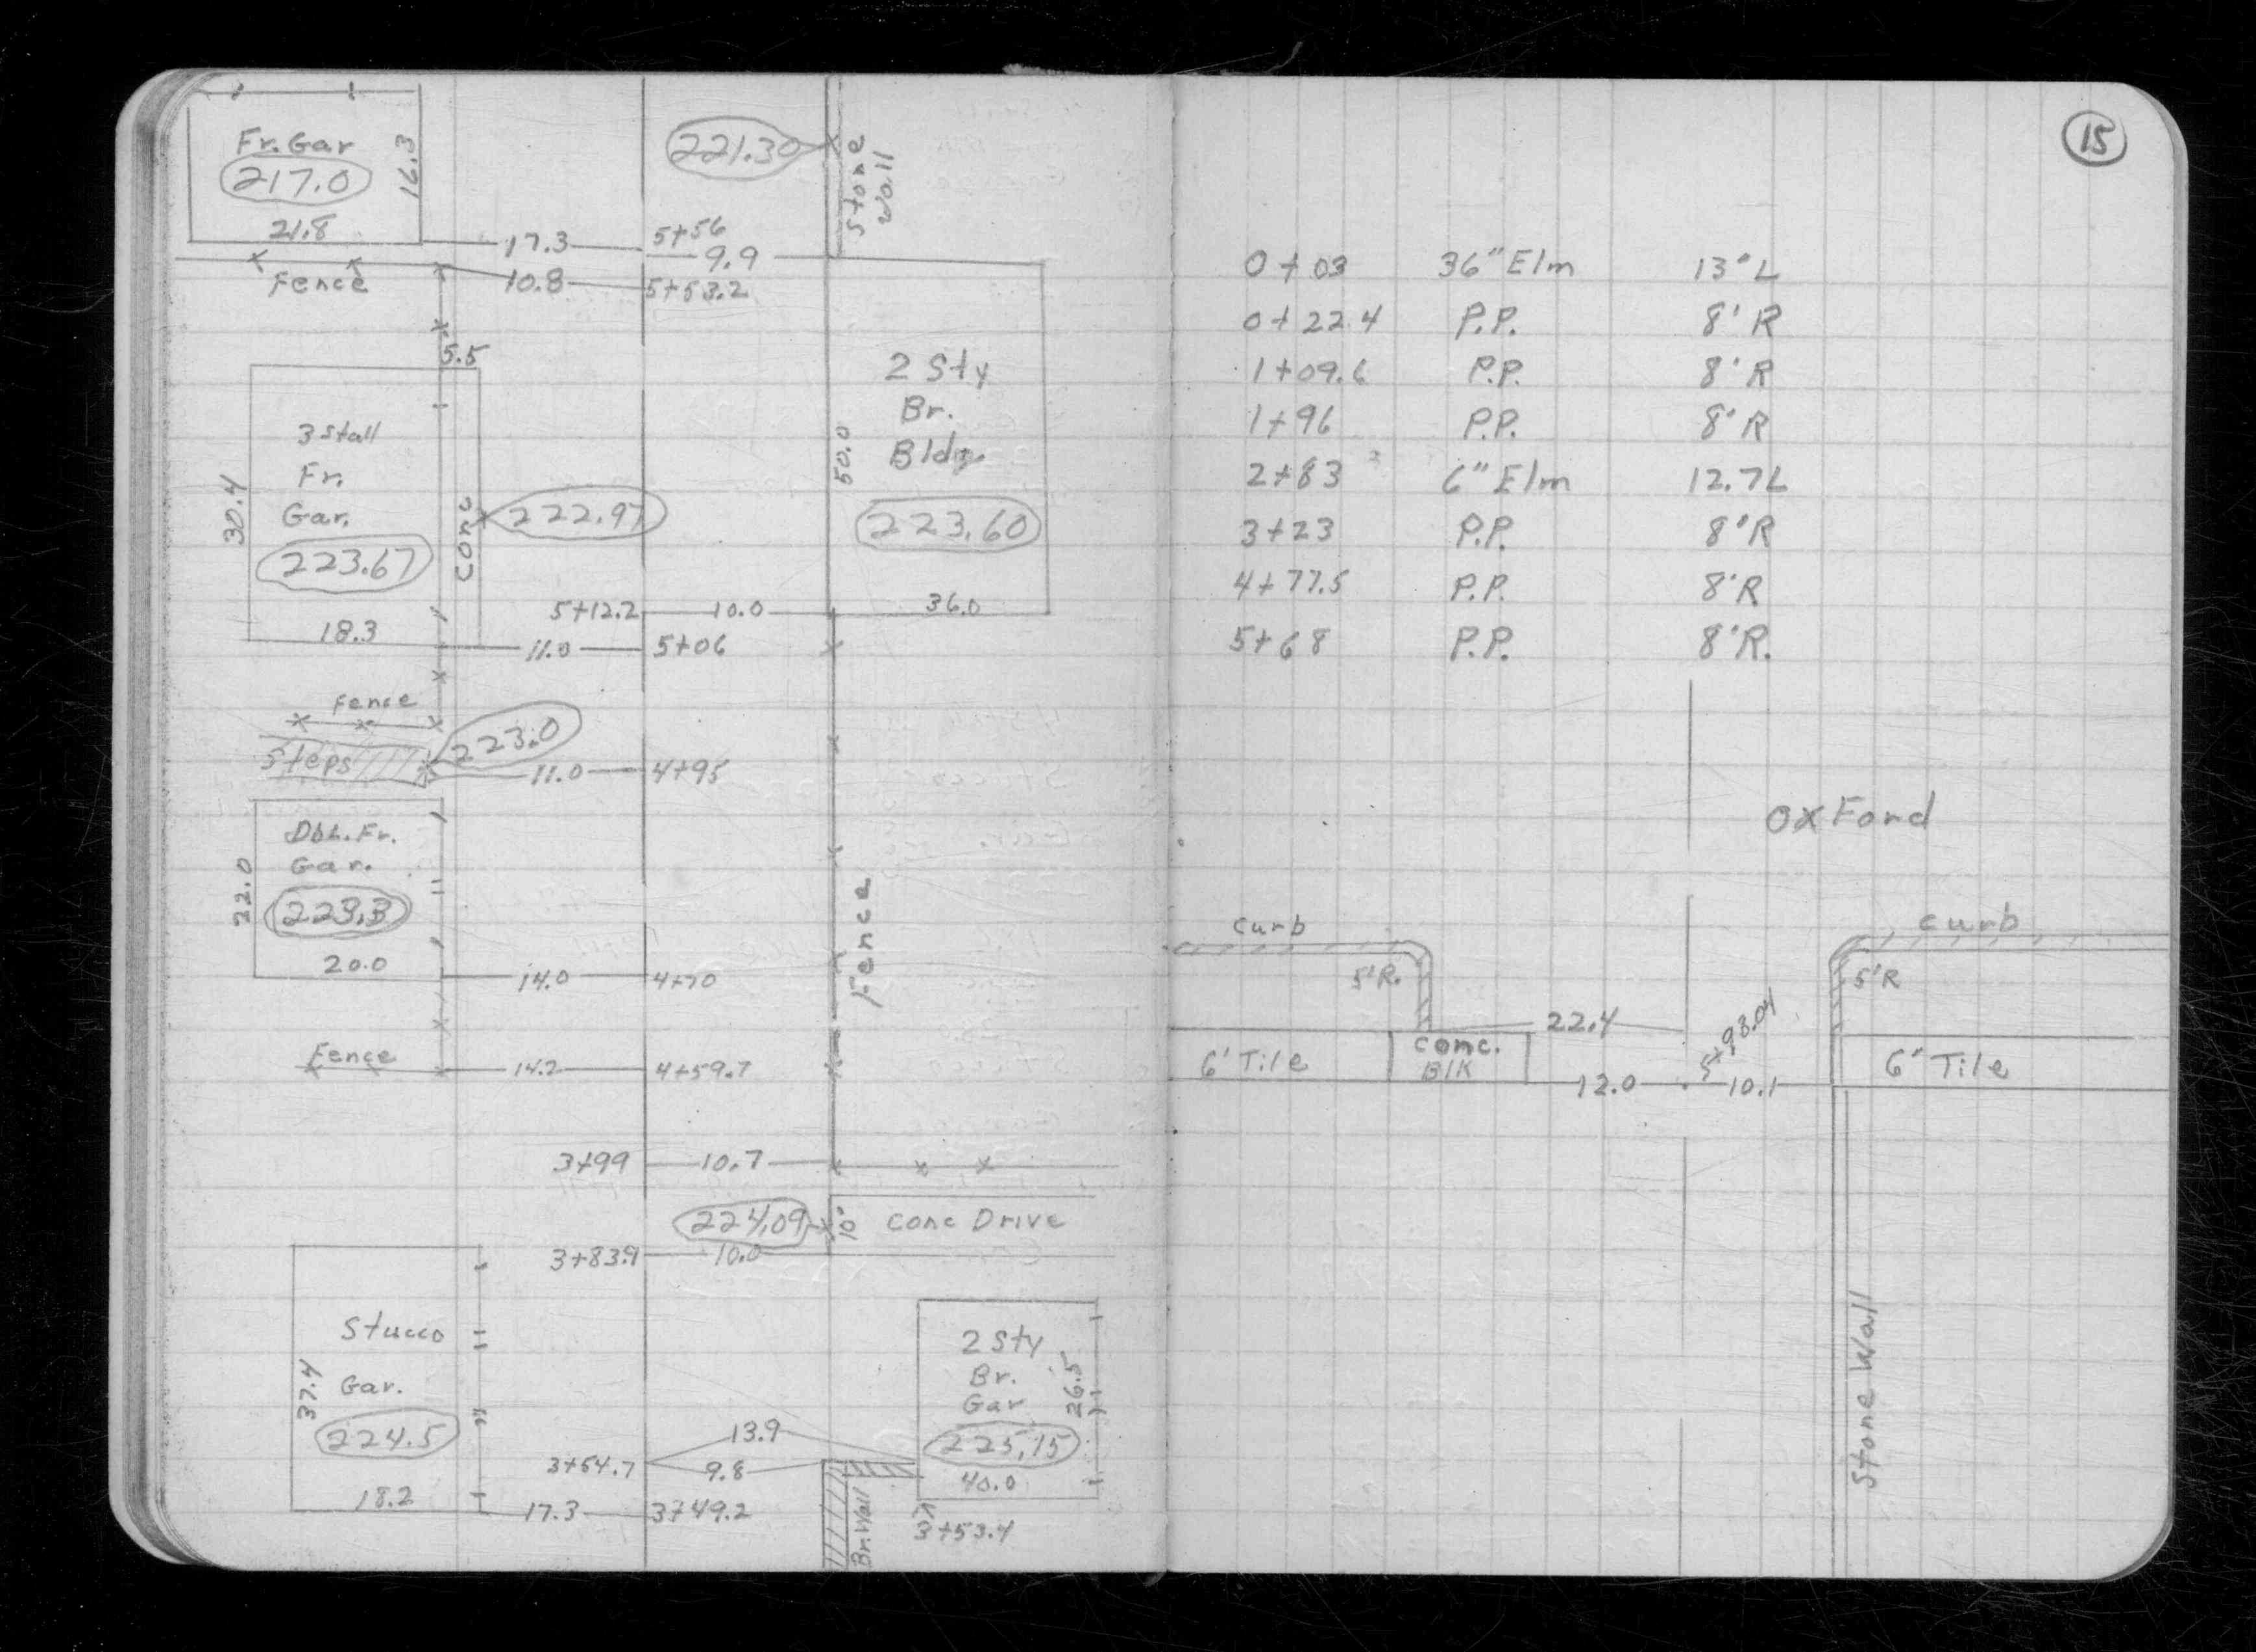 Fr. Gar
217.0
16.3
21.8
221.30
Stone
Wall
17.3
5+56
9.9
Fence
10.8
5+53.2
5.5
3 Stall
Fr.
Gar.
223.67
30.4
18.3
Conc
222.97
2 Sty
Br.
Bldg.
50.0
223.60
36.0
5+12.2
10.0
11.0
5+06
Fence
223.0
Steps
11.0
4+95
Dbl. Fr.
Gar.
223.3
22.0
20.0
14.0
4+70
Fence
Fence
14.2
4+59.7
3+99
10.7
224.09
10'
Conc Drive
3+83.9
10.0
Stucco
Gar.
37.4
224.5
18.2
2 Sty
Br.
Gar
26.5
225.15
40.0
13.9
3+54.7
9.8
17.3
3+49.2
Br. Wall
3+53.4
15
0+03 36" Elm 13' L
0+22.4 P.P. 8' R
1+09.6 P.P. 8' R
1+96 P.P. 8' R
2+83 6" Elm 12.7 L
3+23 P.P. 8' R
4+77.5 P.P. 8' R
5+68 P.P. 8' R.
Oxford
Curb
Curb
5' R.
5' R
22.4
5+98.04
6' Tile
Conc.
Blk
12.0
10.1
6" Tile
Stone Wall